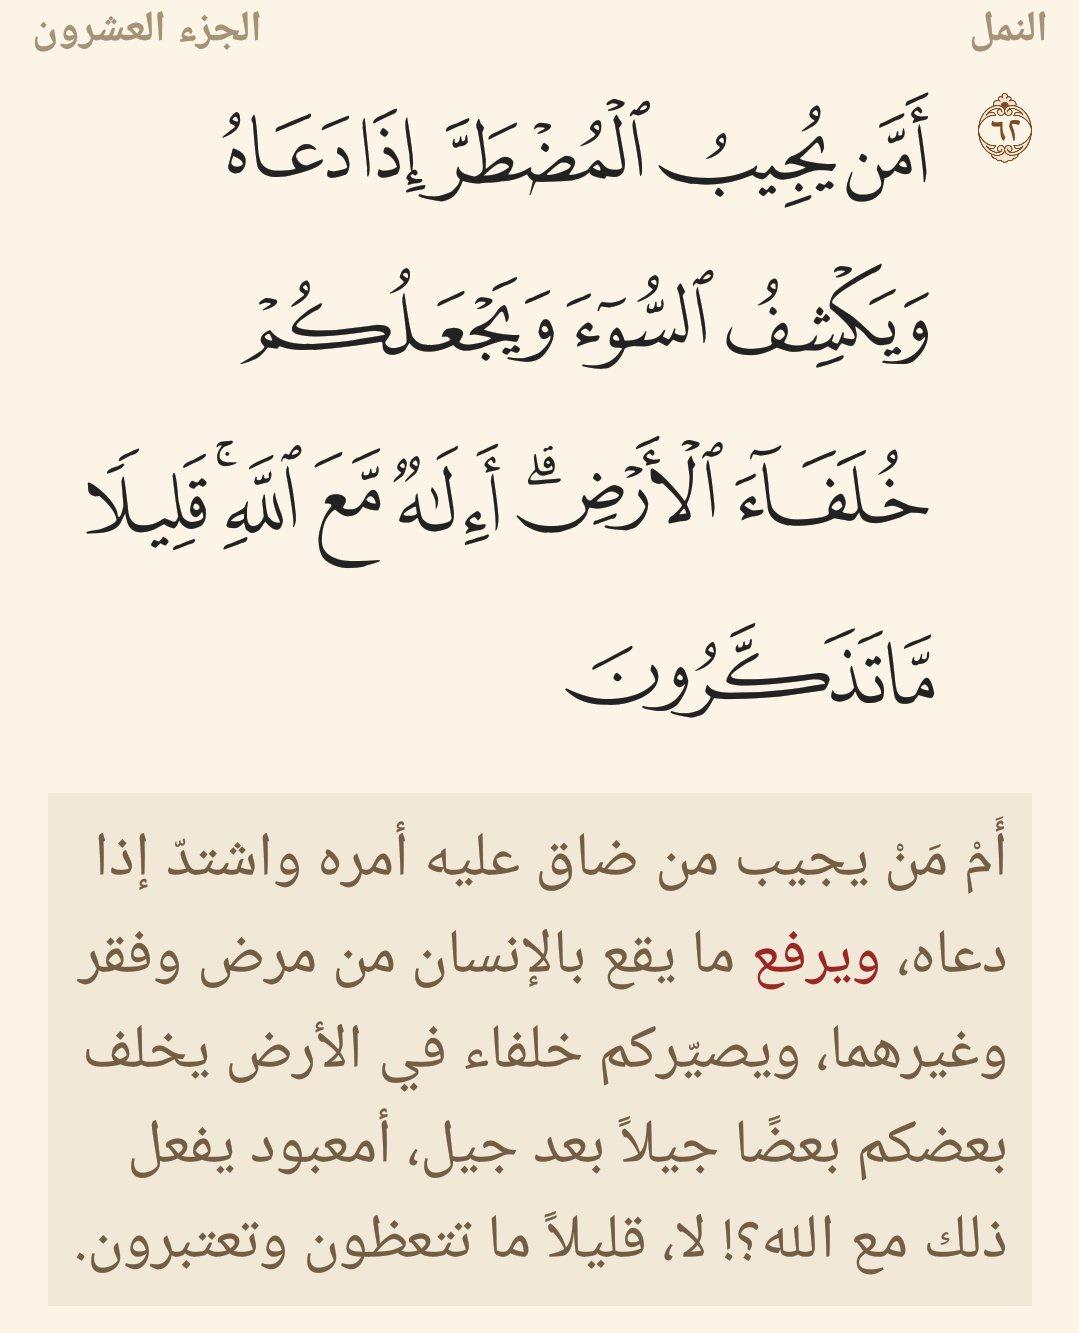 النمل
الجزء العشرون
٦٢
أَمَّن يُجِيبُ ٱلۡمُضۡطَرَّ إِذَا دَعَاهُ
وَيَكۡشِفُ ٱلسُّوٓءَ وَيَجۡعَلُكُمۡ
خُلَفَآءَ ٱلۡأَرۡضِۗ أَءِلَٰهٞ مَّعَ ٱللَّهِۚ قَلِيلٗا
مَّا تَذَكَّرُونَ
أَمْ مَنْ يجيب من ضاق عليه أمره واشتدّ إذا
دعاه، ويرفع ما يقع بالإنسان من مرض وفقر
وغيرهما، ويصيّركم خلفاء في الأرض يخلف
بعضكم بعضًا جيلاً بعد جيل، أمعبود يفعل
ذلك مع الله؟! لا، قليلاً ما تتعظون وتعتبرون.